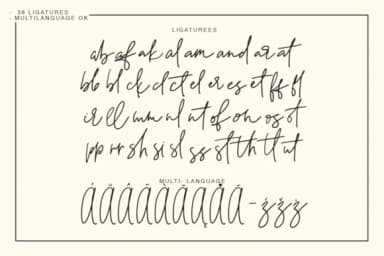 - 38 LIGATURES
- MULTILANGUAGE OK
LIGATUREES
ab af ak al am and ar at
bb bl ck cl ct el er es et ff fl
ir ll mm nl nt of on os ot
pp rr sh si sl ss st th tl ut
MULTI- LANGUAGE